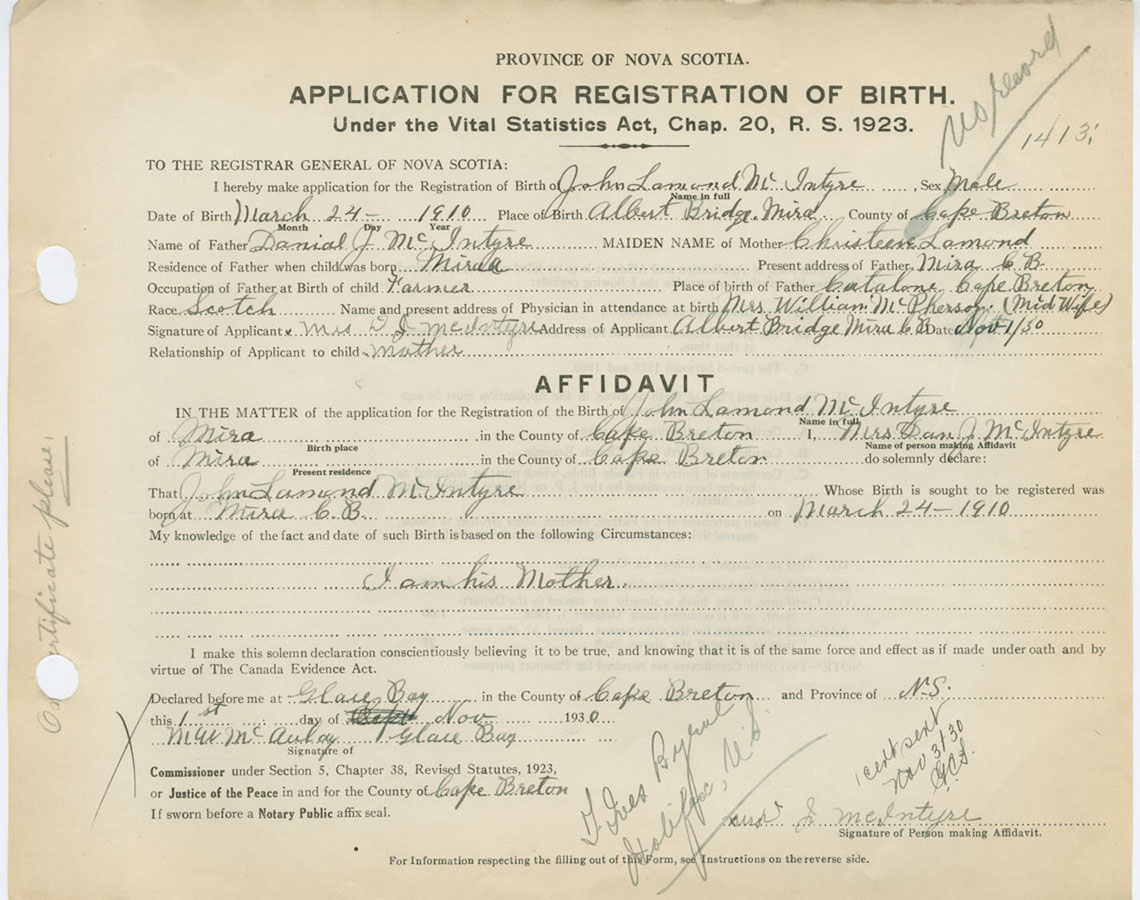 PROVINCE OF NOVA SCOTIA.
APPLICATION FOR REGISTRATION OF BIRTH.
Under the Vital Statistics Act, Chap. 20, R. S. 1923.
No record
1413
TO THE REGISTRAR GENERAL OF NOVA SCOTIA:
I hereby make application for the Registration of Birth of John Lamond Mc Intyre Sex Male
Name in full
Date of Birth March 24- 1910 Place of Birth Albert Bridge. Mira County of Cape Breton
Month Day Year
Name of Father Danial J. Mc Intyre MAIDEN NAME of Mother Christeen Lamond
Residence of Father when child was born Miraa Present address of Father Mira C B.
Occupation of Father at Birth of child Farmer Place of birth of Father Catalone, Cape Breton
Race Scotch Name and present address of Physician in attendance at birth Mrs William McPherson. (Mid Wife)
Signature of Applicant x Mrs D J McIntyre Address of Applicant Albert Bridge Mira C B Date Nov 1/30
Relationship of Applicant to child Mother
AFFIDAVIT
IN THE MATTER of the application for the Registration of the Birth of John Lamond Mc Intyre
Name in full
of Mira in the County of Cape Breton I, Mrs Dan J. McIntyre
Birth place Name of person making Affidavit
of Mira in the County of Cape Breton do solemnly declare:
Present residence
That John Lamond Mc Intyre Whose Birth is sought to be registered was
born at Mira C.B. on March 24-1910
My knowledge of the fact and date of such Birth is based on the following Circumstances:
I am his Mother.
I make this solemn declaration conscientiously believing it to be true, and knowing that it is of the same force and effect as if made under oath and by
virtue of The Canada Evidence Act.
Declared before me at Glace Bay in the County of Cape Breton and Province of N.S.
this 1st day of Nov 1930
Mc Aulay Glace Bay
Signature of
Commissioner under Section 5, Chapter 38, Revised Statutes, 1923,
or Justice of the Peace in and for the County of Cape Breton
If sworn before a Notary Public affix seal.
Halifax, N.S.
1 cert sent
Nov 3/30
J McIntyre
Signature of Person making Affidavit.
For Information respecting the filling out of this Form, see Instructions on the reverse side.
certificate please.